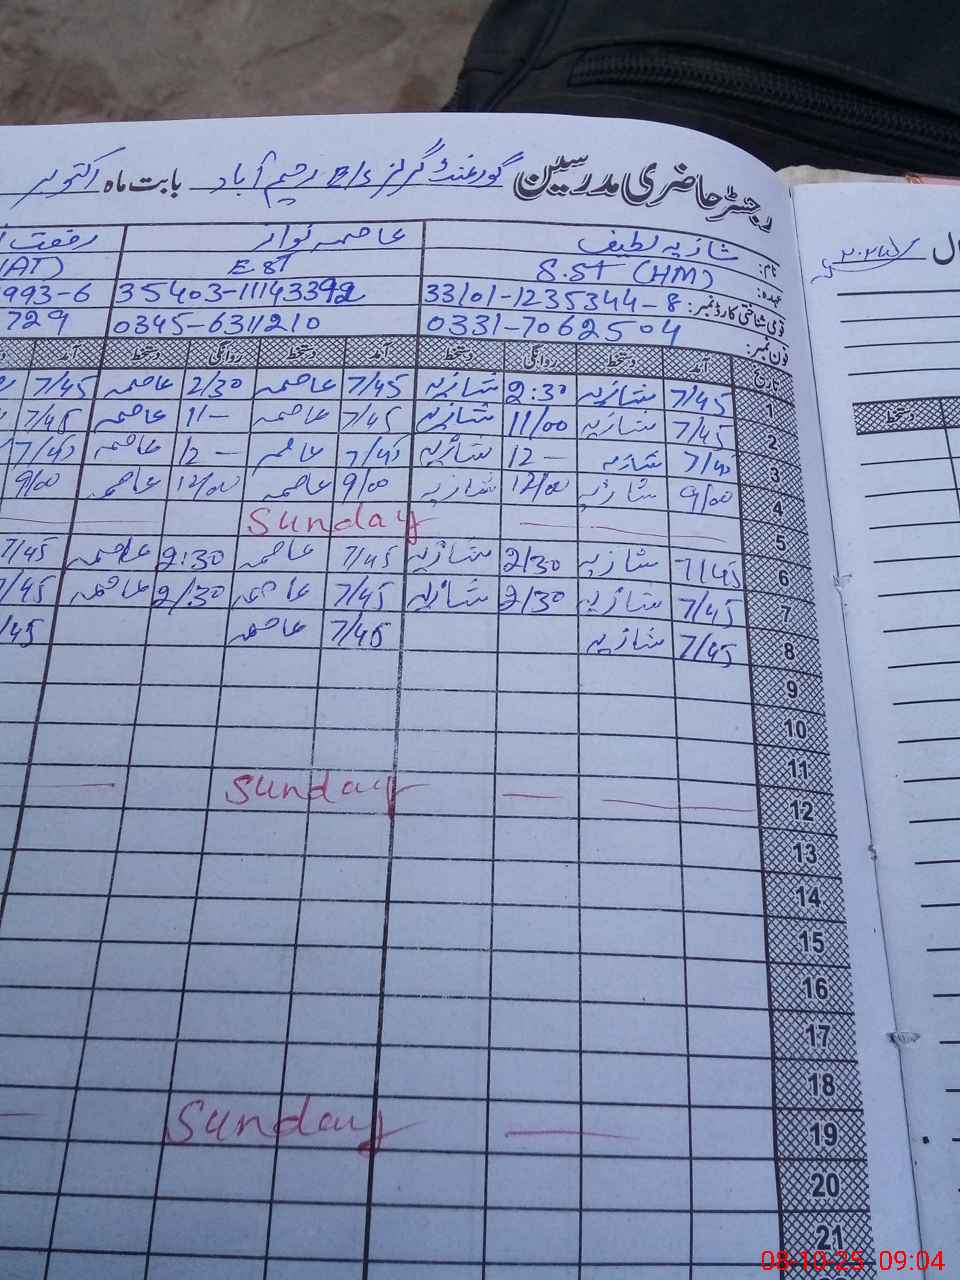 رجسٹر حاضری مدرسین گورنمنٹ گرلز E/S رحیم آباد بابت ماہ اکتوبر
نام: شازیہ لطیف عاصمہ نواز رفعت
عہدہ: S.ST (HM) EST (AT)
قومی شناختی کارڈ نمبر: 33101-1235344-8 35403-11143392 993-6
فون نمبر: 0331-7062504 0345-6311210 729
تاریخ آمد دستخط روانگی دستخط آمد دستخط روانگی دستخط آمد
1 7/45 شازیہ 2:30 شازیہ 7/45 عاصمہ 2/30 عاصمہ 7/45
2 7/45 شازیہ 11/00 شازیہ 7/45 عاصمہ 11- عاصمہ 7/45
3 7/40 شازیہ 12- شازیہ 7/40 عاصمہ 12- عاصمہ 7/40
4 9/00 شازیہ 12/00 شازیہ 9/00 عاصمہ 12/00 عاصمہ 9/00
5 Sunday
6 7/45 شازیہ 2/30 شازیہ 7/45 عاصمہ 2:30 عاصمہ 7/45
7 7/45 شازیہ 2/30 شازیہ 7/45 عاصمہ 2/30 عاصمہ 7/45
8 7/45 شازیہ 7/45 عاصمہ /45
9
10
11
12 Sunday
13
14
15
16
17
18
19 Sunday
20
21
دستخط
08-10-25 09:04